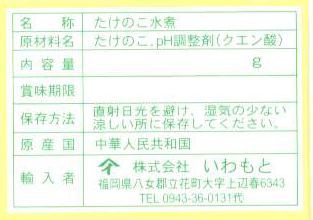 名称 たけのこ水煮
原材料名 たけのこ、pH調整剤(クエン酸)
内容量 g
賞味期限
保存方法 直射日光を避け、湿気の少ない
涼しい所に保存してください。
原産国 中華人民共和国
輸入者 株式会社 いわもと
福岡県八女郡立花町大字上辺春6343
TEL 0943-36-0131代